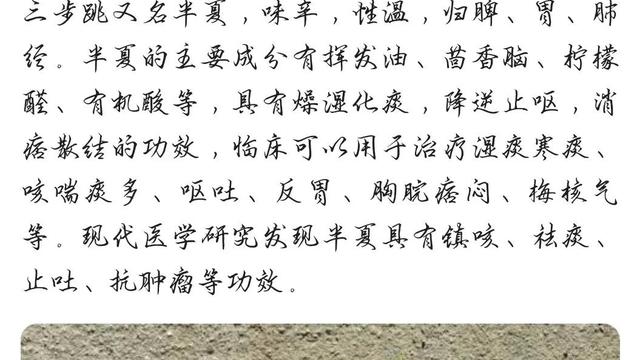 三步跳又名半夏，味辛，性温，归脾、胃、肺
经。半夏的主要成分有挥发油、茴香脑、柠檬
醛、有机酸等，具有燥湿化痰，降逆止呕，消
痞散结的功效，临床可以用于治疗湿痰寒痰、
咳喘痰多、呕吐、反胃、胸脘痞闷、梅核气
等。现代医学研究发现半夏具有镇咳、祛痰、
止吐、抗肿瘤等功效。